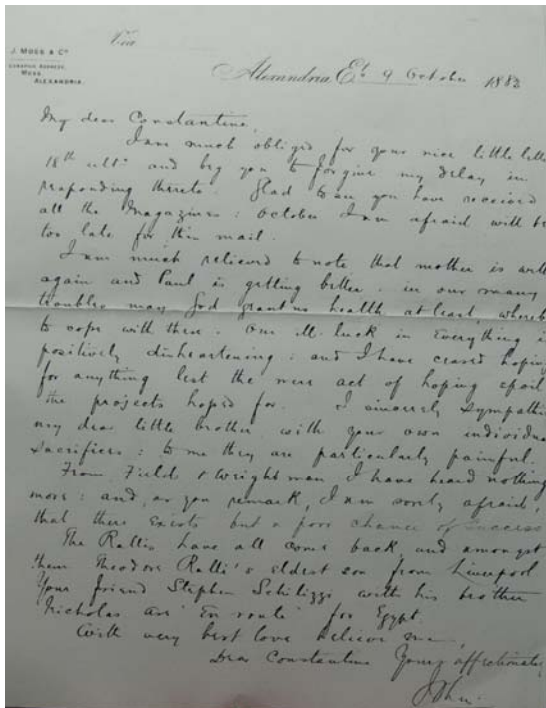 Via
J. MOSS & Co
TELEGRAPHIC ADDRESS,
MOSS,
ALEXANDRIA.
Alexandria, Et. 9 October 1882
My dear Constantine,
I am much obliged for your nice little letter
18th ulto and beg you to forgive my delay in
responding thereto. Glad to see you have received
all the Magazines: October I am afraid will be
too late for this mail.
I am much relieved to note that mother is well
again and Paul is getting better. in our many
troubles may God grant us health at least, whereby
to cope with them. Our ill-luck in Everything is
positively disheartening: and I have ceased hoping
for anything lest the mere act of hoping spoil
the projects hoped for. I sincerely sympathise
my dear little brother with your own individual
sacrifices: to me they are particularly painful.
From Field & Wrightman I have heard nothing
more: and, as you remark, I am sorely afraid,
that there Exists but a poor chance of success
The Rallis have all come back, and amongst
them Theodore Ralli's eldest son from Liverpool
Your friend Stephen Schilizzi with his brother
Nicholas are "En route" for Egypt.
With very best love believe me,
Dear Constantine Yours affectionately
John.